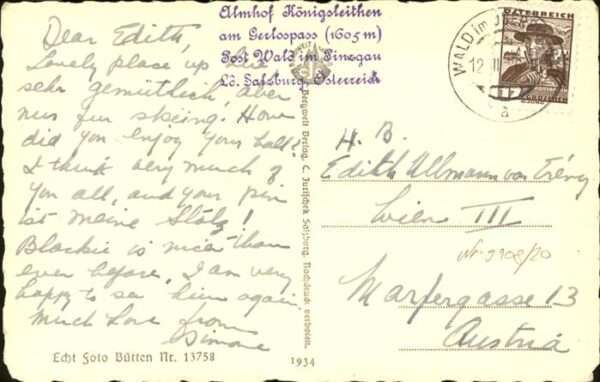 Almhof Königsleithen
am Gerlospass (1605 m)
Post Wald im Pinzgau
Ld. Salzburg, Österreich
Dear Edith,
Lovely place up here
sehr gemütlich, aber
nur für skieing. How
did you enjoy your ball?
I think very much of
you all, and your pin
ist meine Stolz!
Blackie is nicer than
ever before, I am very
happy to see him again.
Much Love from
Simone
Echt Foto Bütten Nr. 13758
1934
Bergwelt Verlag, C. Jurischek, Salzburg. Nachdruck verboten.
ÖSTERREICH
WALD im
12 II
H. B.
Edith Ullmann von
Wien III
Nr. 3908/20
Marfergasse 13
Austria